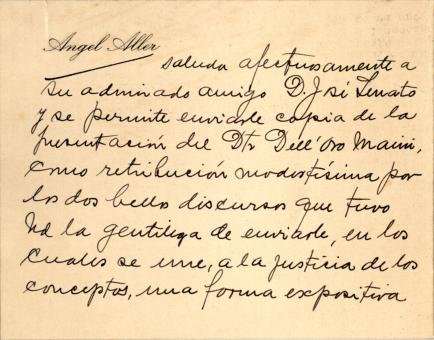 Angel Aller
saluda afectuosamente a
su admirado amigo D. José Serrato
y se permite enviarle copia de la
presentación del Dtr Dell'Oro Maini,
como retribución modestísima por
los dos bellos discursos que tuvo
Ud la gentileza de enviarle, en los
cuales se une, a la justicia de los
conceptos, una forma expositiva